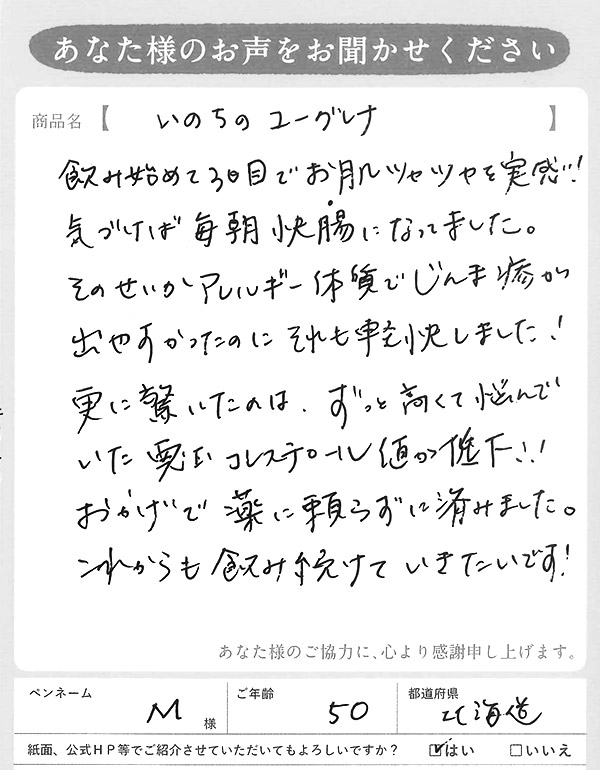 あなた様のお声をお聞かせください
商品名【 いのちのユーグレナ 】
飲み始めて3日目でお肌ツヤツヤを実感!!
気づけば毎朝快腸になってました。
そのせいかアレルギー体質でじんま疹が
出やすかったのにそれも軽快しました!
更に驚いたのは、ずっと高くて悩んで
いた悪玉コレステロール値が低下!!
おかげで薬に頼らずに済みました。
これからも飲み続けていきたいです!
あなた様のご協力に、心より感謝申し上げます。
ペンネーム M 様 ご年齢 50 都道府県 北海道
紙面、公式HP等でご紹介させていただいてもよろしいですか? ☑はい □いいえ